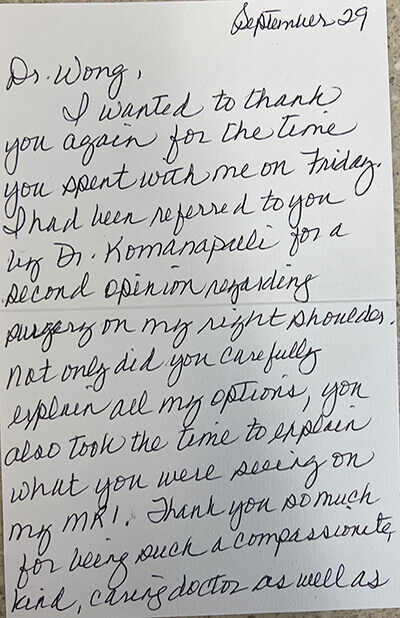 September 29
Dr. Wong,
I wanted to thank
you again for the time
you spent with me on Friday.
I had been referred to you
by Dr. Komanapalli for a
second opinion regarding
surgery on my right shoulder.
Not only did you carefully
explain all my options, you
also took the time to explain
what you were seeing on
my MRI. Thank you so much
for being such a compassionate,
kind, caring doctor as well as